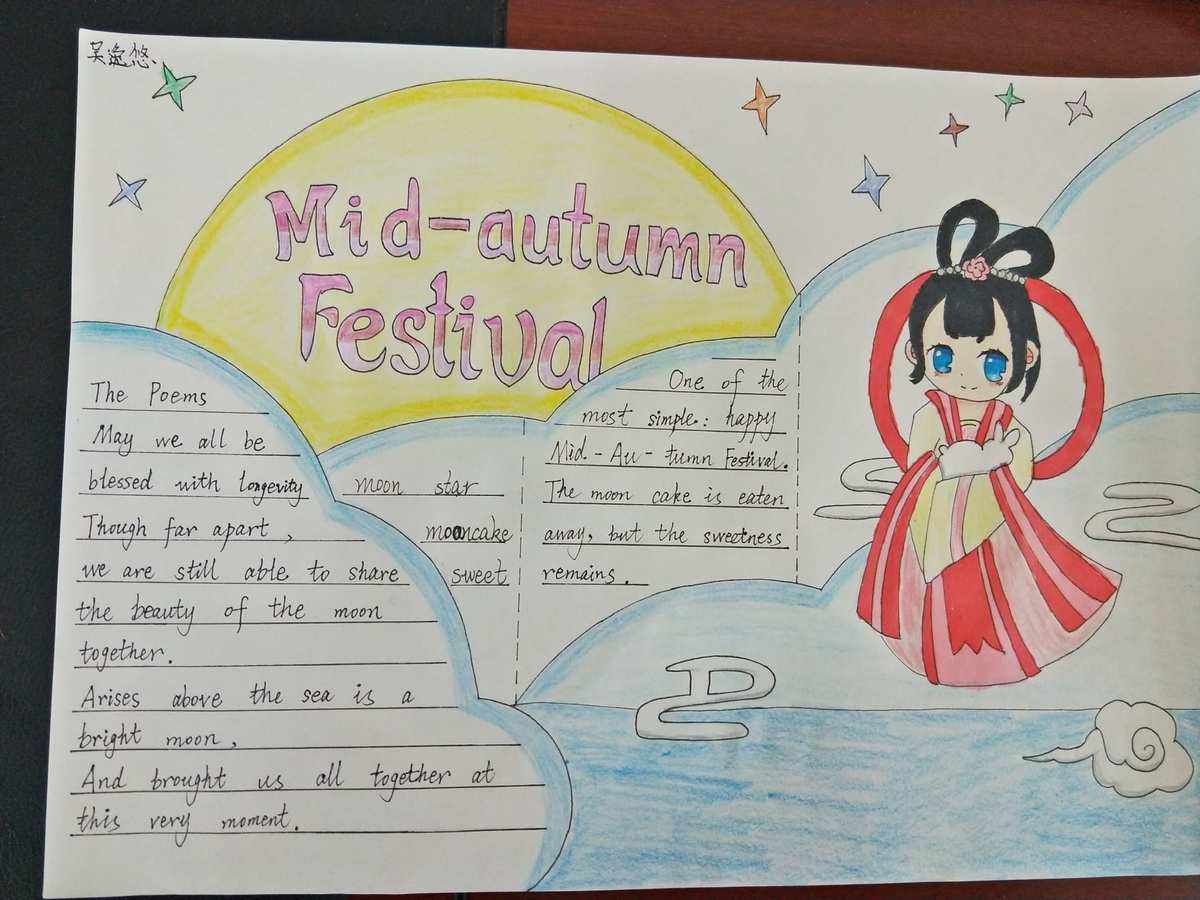 吴逸悠
Mid-autumn
Festival
The Poems
May we all be
blessed with longevity
Though far apart,
we are still able to share
the beauty of the moon
together.
Arises above the sea is a
bright moon,
And brought us all together at
this very moment.
moon star
mooncake
sweet
One of the
most simple: happy
Mid-Au-tumn Festival.
The moon cake is eaten
away, but the sweetness
remains.